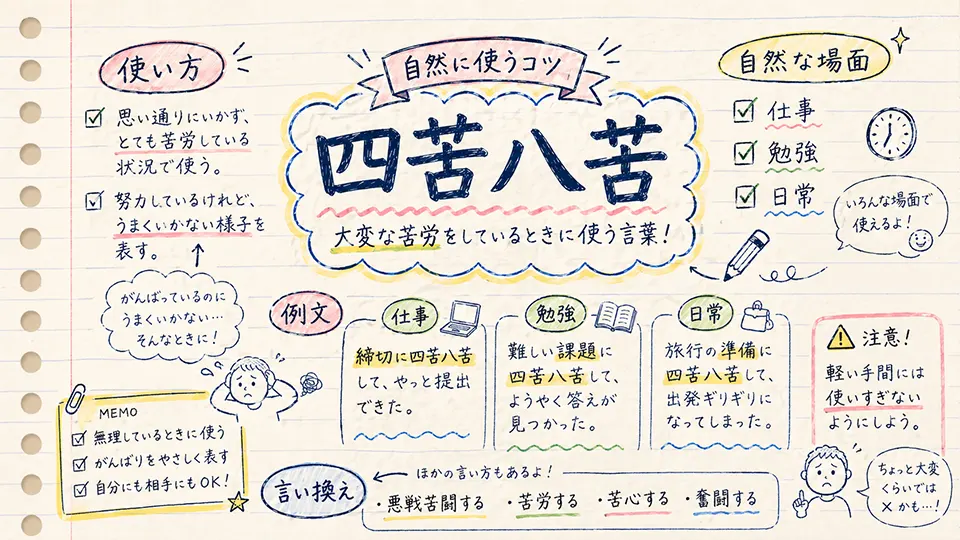 自然に使うコツ
四苦八苦
大変な苦労をしているときに使う言葉！
使い方
思い通りにいかず、
とても苦労している
状況で使う。
努力しているけれど、
うまくいかない様子を
表す。
がんばっているのに
うまくいかない…
そんなときに！
自然な場面
仕事
勉強
日常
いろんな場面で
使えるよ！
例文
仕事
締切に四苦八苦
して、やっと提出
できた。
勉強
難しい課題に
四苦八苦して、
ようやく答えが
見つかった。
日常
旅行の準備に
四苦八苦して、
出発ギリギリに
なってしまった。
注意！
軽い手間には
使いすぎない
ようにしよう。
ちょっと大変
くらいでは
×かも…！
MEMO
無理しているときに使う
がんばりをやさしく表す
自分にも相手にもOK！
言い換え
ほかの言い方もあるよ！
・悪戦苦闘する ・苦労する ・苦心する ・奮闘する